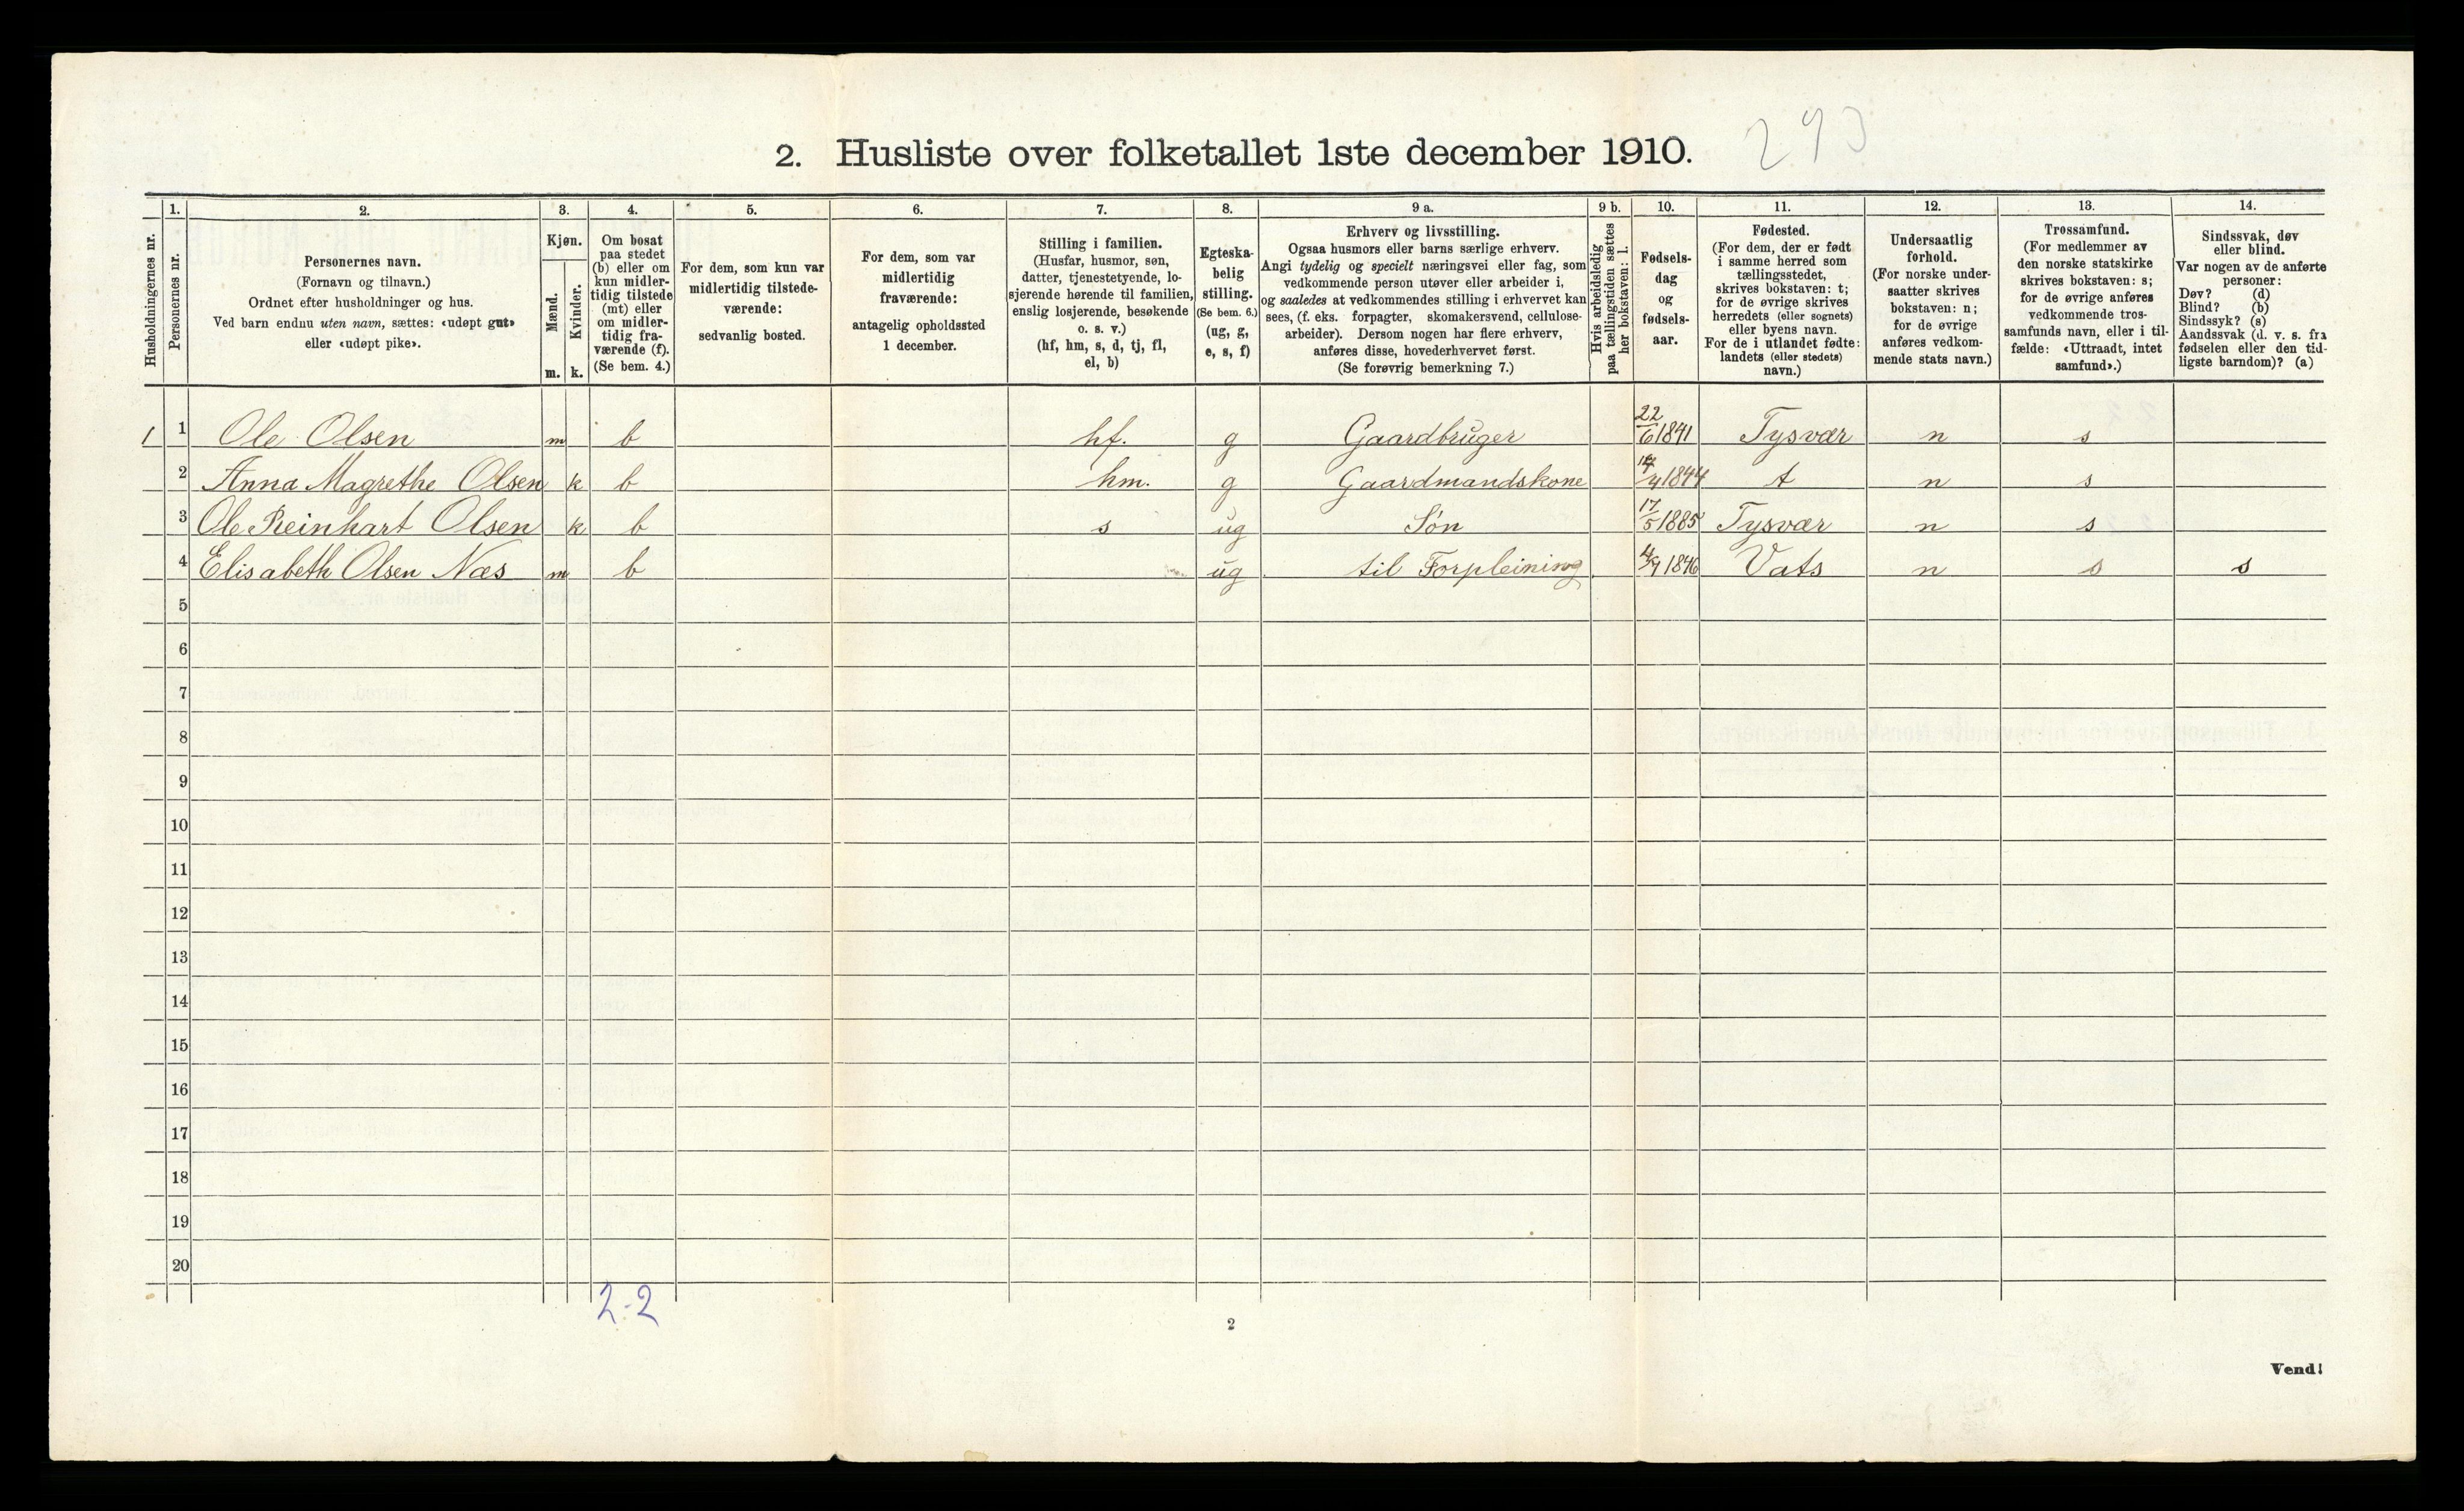 2. Husliste over folketallet 1ste december 1910.
293
Husholdningernes nr.
1.
Personernes nr.
2.
Personernes navn.
(Fornavn og tilnavn.)
Ordnet efter husholdninger og hus.
Ved barn endnu uten navn, sættes: «udøpt gut»
eller «udøpt pike».
3.
Kjøn.
Mænd.
Kvinder.
m. k.
4.
Om bosat
paa stedet
(b) eller om
kun midler-
tidig tilstede
(mt) eller
om midler-
tidig fra-
værende (f).
(Se bem. 4.)
5.
For dem, som kun var
midlertidig tilstede-
værende:
sedvanlig bosted.
6.
For dem, som var
midlertidig
fraværende:
antagelig opholdssted
1 december.
7.
Stilling i familien.
(Husfar, husmor, søn,
datter, tjenestetyende, lo-
sjerende hørende til familien,
enslig losjerende, besøkende
o. s. v.)
(hf, hm, s, d, tj, fl,
el, b)
8.
Egteska-
belig
stilling.
(Se bem. 6.)
(ug, g,
e, s, f)
9 a.
Erhverv og livsstilling.
Ogsaa husmors eller barns særlige erhverv.
Angi tydelig og specielt næringsvei eller fag, som
vedkommende person utøver eller arbeider i,
og saaledes at vedkommendes stilling i erhvervet kan
sees, (f. eks. forpagter, skomakersvend, cellulose-
arbeider). Dersom nogen har flere erhverv,
anføres disse, hovederhvervet først.
(Se forøvrig bemerkning 7.)
9 b.
Hvis arbeidsledig
paa tællingstiden sættes
her bokstaven: l.
10.
Fødsels-
dag
og
fødsels-
aar.
11.
Fødested.
(For dem, der er født
i samme herred som
tællingsstedet,
skrives bokstaven: t;
for de øvrige skrives
herredets (eller sognets)
eller byens navn.
For de i utlandet fødte:
landets (eller stedets)
navn.)
12.
Undersaatlig
forhold.
(For norske under-
saatter skrives
bokstaven: n;
for de øvrige
anføres vedkom-
mende stats navn.)
13.
Trossamfund.
(For medlemmer av
den norske statskirke
skrives bokstaven: s;
for de øvrige anføres
vedkommende tros-
samfunds navn, eller i til-
fælde: «Uttraadt, intet
samfund».)
14.
Sindssvak, døv
eller blind.
Var nogen av de anførte
personer:
Døv? (d)
Blind? (b)
Sindssyk? (s)
Aandssvak (d. v. s. fra
fødselen eller den tid-
ligste barndom)? (a)
1 1 Ole Olsen m b hf. g Gaardbruger 22/6 1841 Tysvær n s
2 Anna Magrethe Olsen k b hm. g Gaardmandskone /4 1844 t n s
3 Ole Reinhart Olsen k b s ug Søn 17/5 1885 Tysvær n s
4 Elisabeth Olsen Næs m b ug til Forpleining 4/7 1846 Vats n s s
5
6
7
8
9
10
11
12
13
14
15
16
17
18
19
20
2-2
2
Vend!